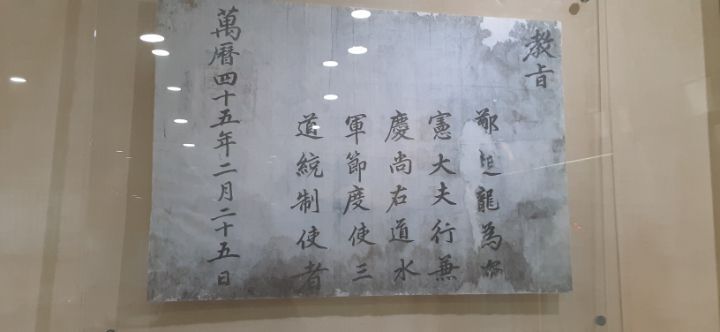 教旨
鄭起龍為
憲大夫行兼
慶尚右道水
軍節度使三
道統制使者
萬曆四十五年二月二十五日